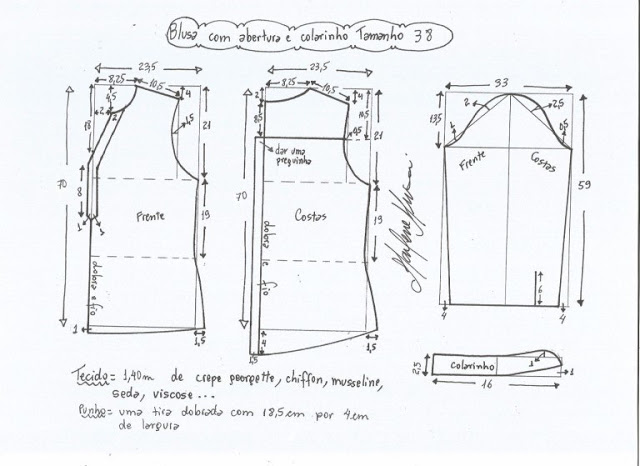 Blusa com abertura e colarinho Tamanho 38
23,5
8,25
10,5
4
4,5
2
2
18
1,5
21
70
8
1
1
Frente
19
dobra e fio
1
1,5
23,5
8,25
10,5
2
4
8,5
10,5
0,5
21
dar uma
preguinha
70
Costas
19
dobra e fio
1,5
4
1,5
33
2
2,5
13,5
1
0,5
Frente
Costas
59
6
4
4
2,5
Colarinho
1
1
16
Tecido = 1,40m de crepe georgette, chiffon, musseline,
seda, viscose...
Punho = uma tira dobrada com 18,5cm por 4cm
de largura